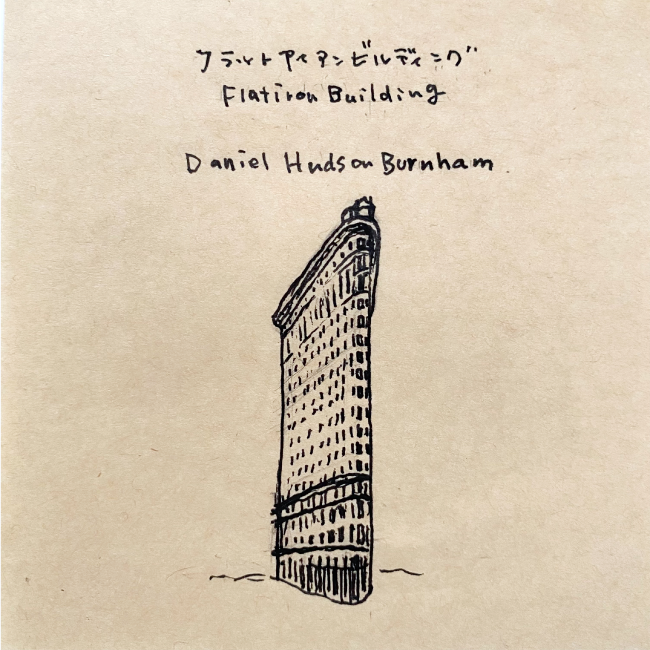 フラットアイアンビルディング
Flatiron Building
Daniel Hudson Burnham